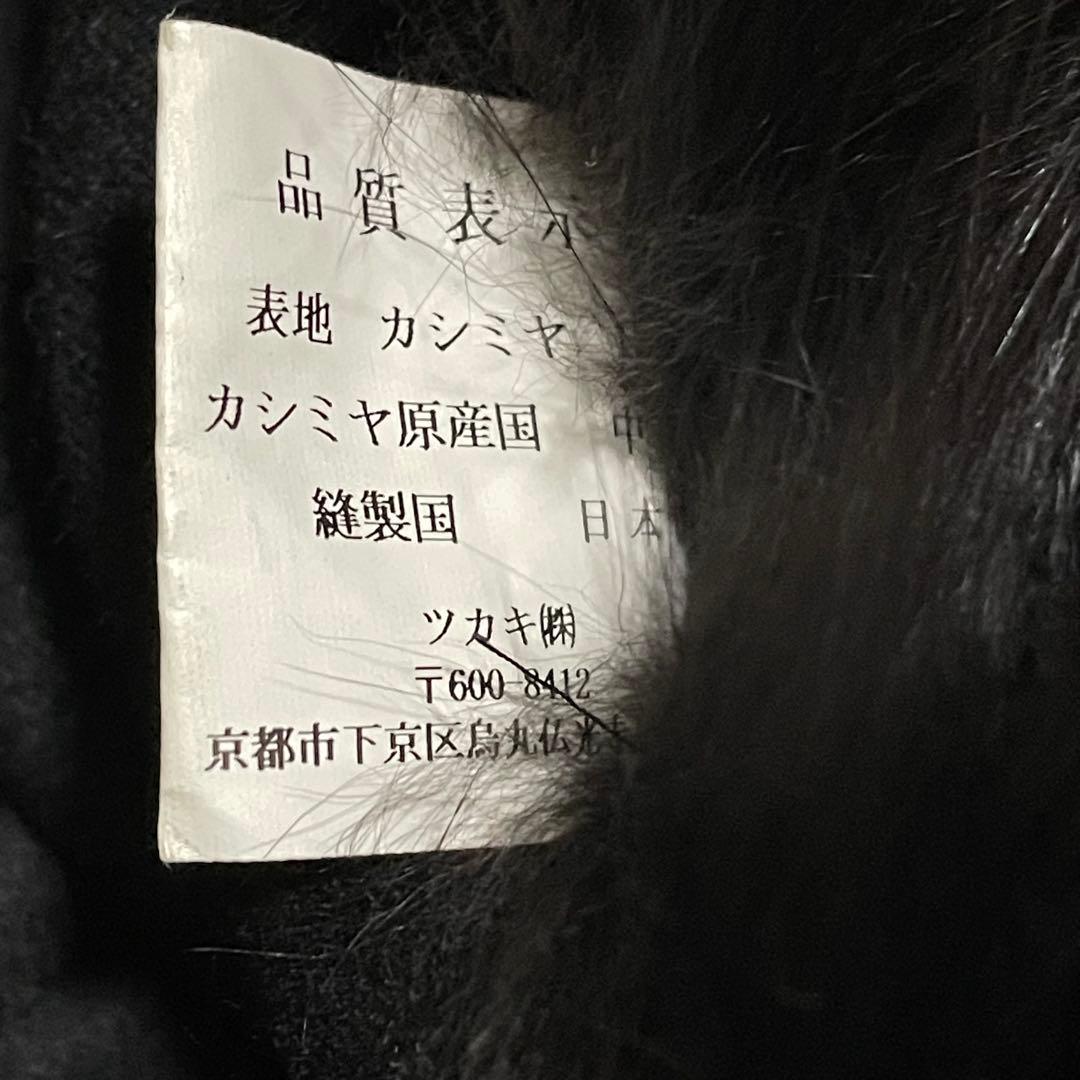 品質表示
表地 カシミヤ
カシミヤ原産国 中
縫製国 日本
ツカキ㈱
〒600-8412
京都市下京区烏丸仏光寺